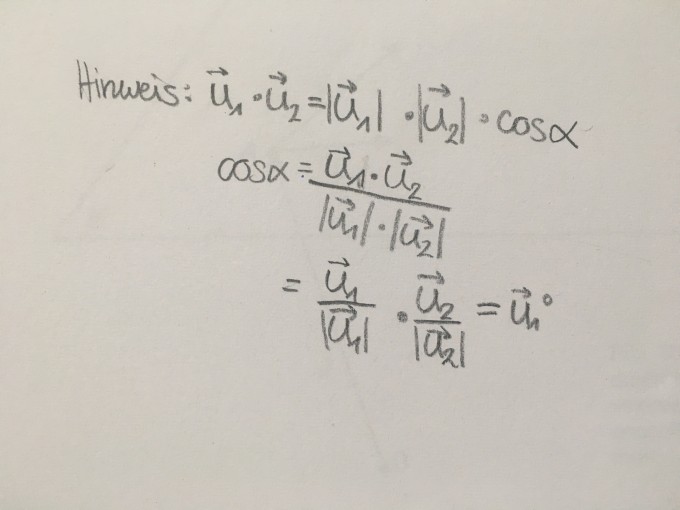 Hinweis: u⃗₁ · u⃗₂ = |u⃗₁| · |u⃗₂| · cosα
cosα = (u⃗₁ · u⃗₂) / (|u⃗₁| · |u⃗₂|)
= u⃗₁/|u⃗₁| · u⃗₂/|u⃗₂| = u⃗₁°